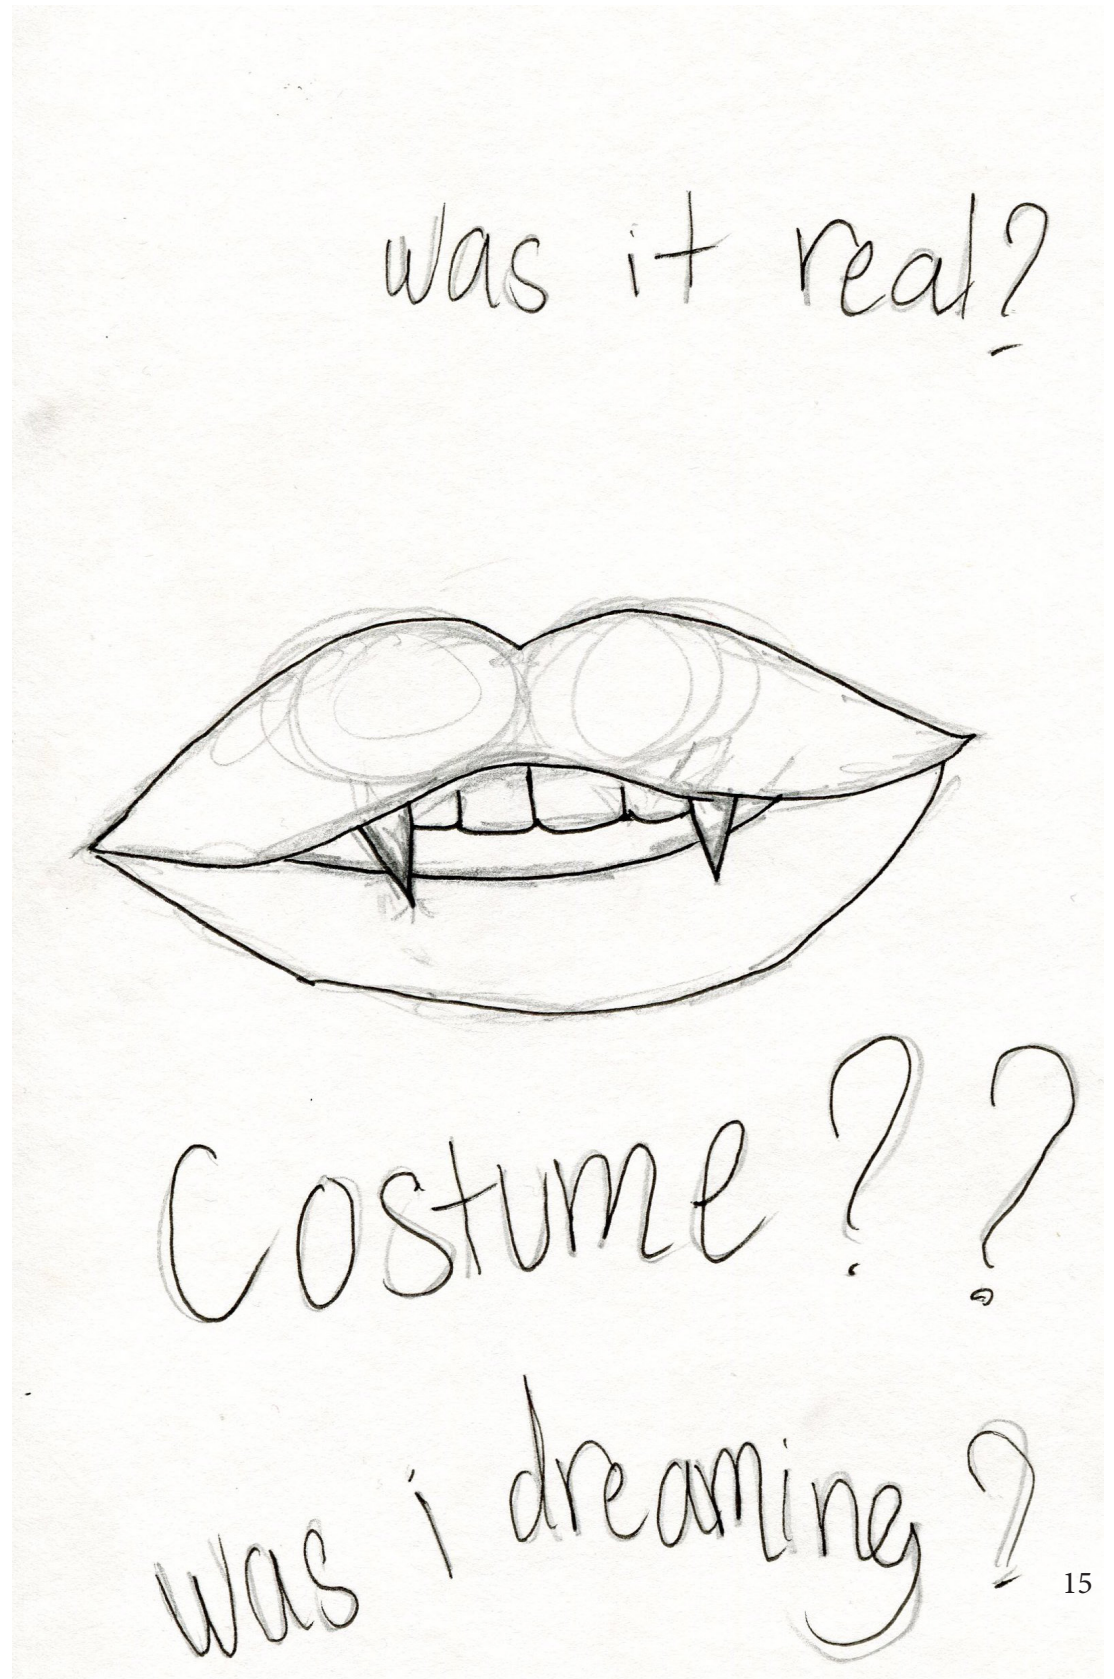 was it real?
Costume??
was i dreaming?
15